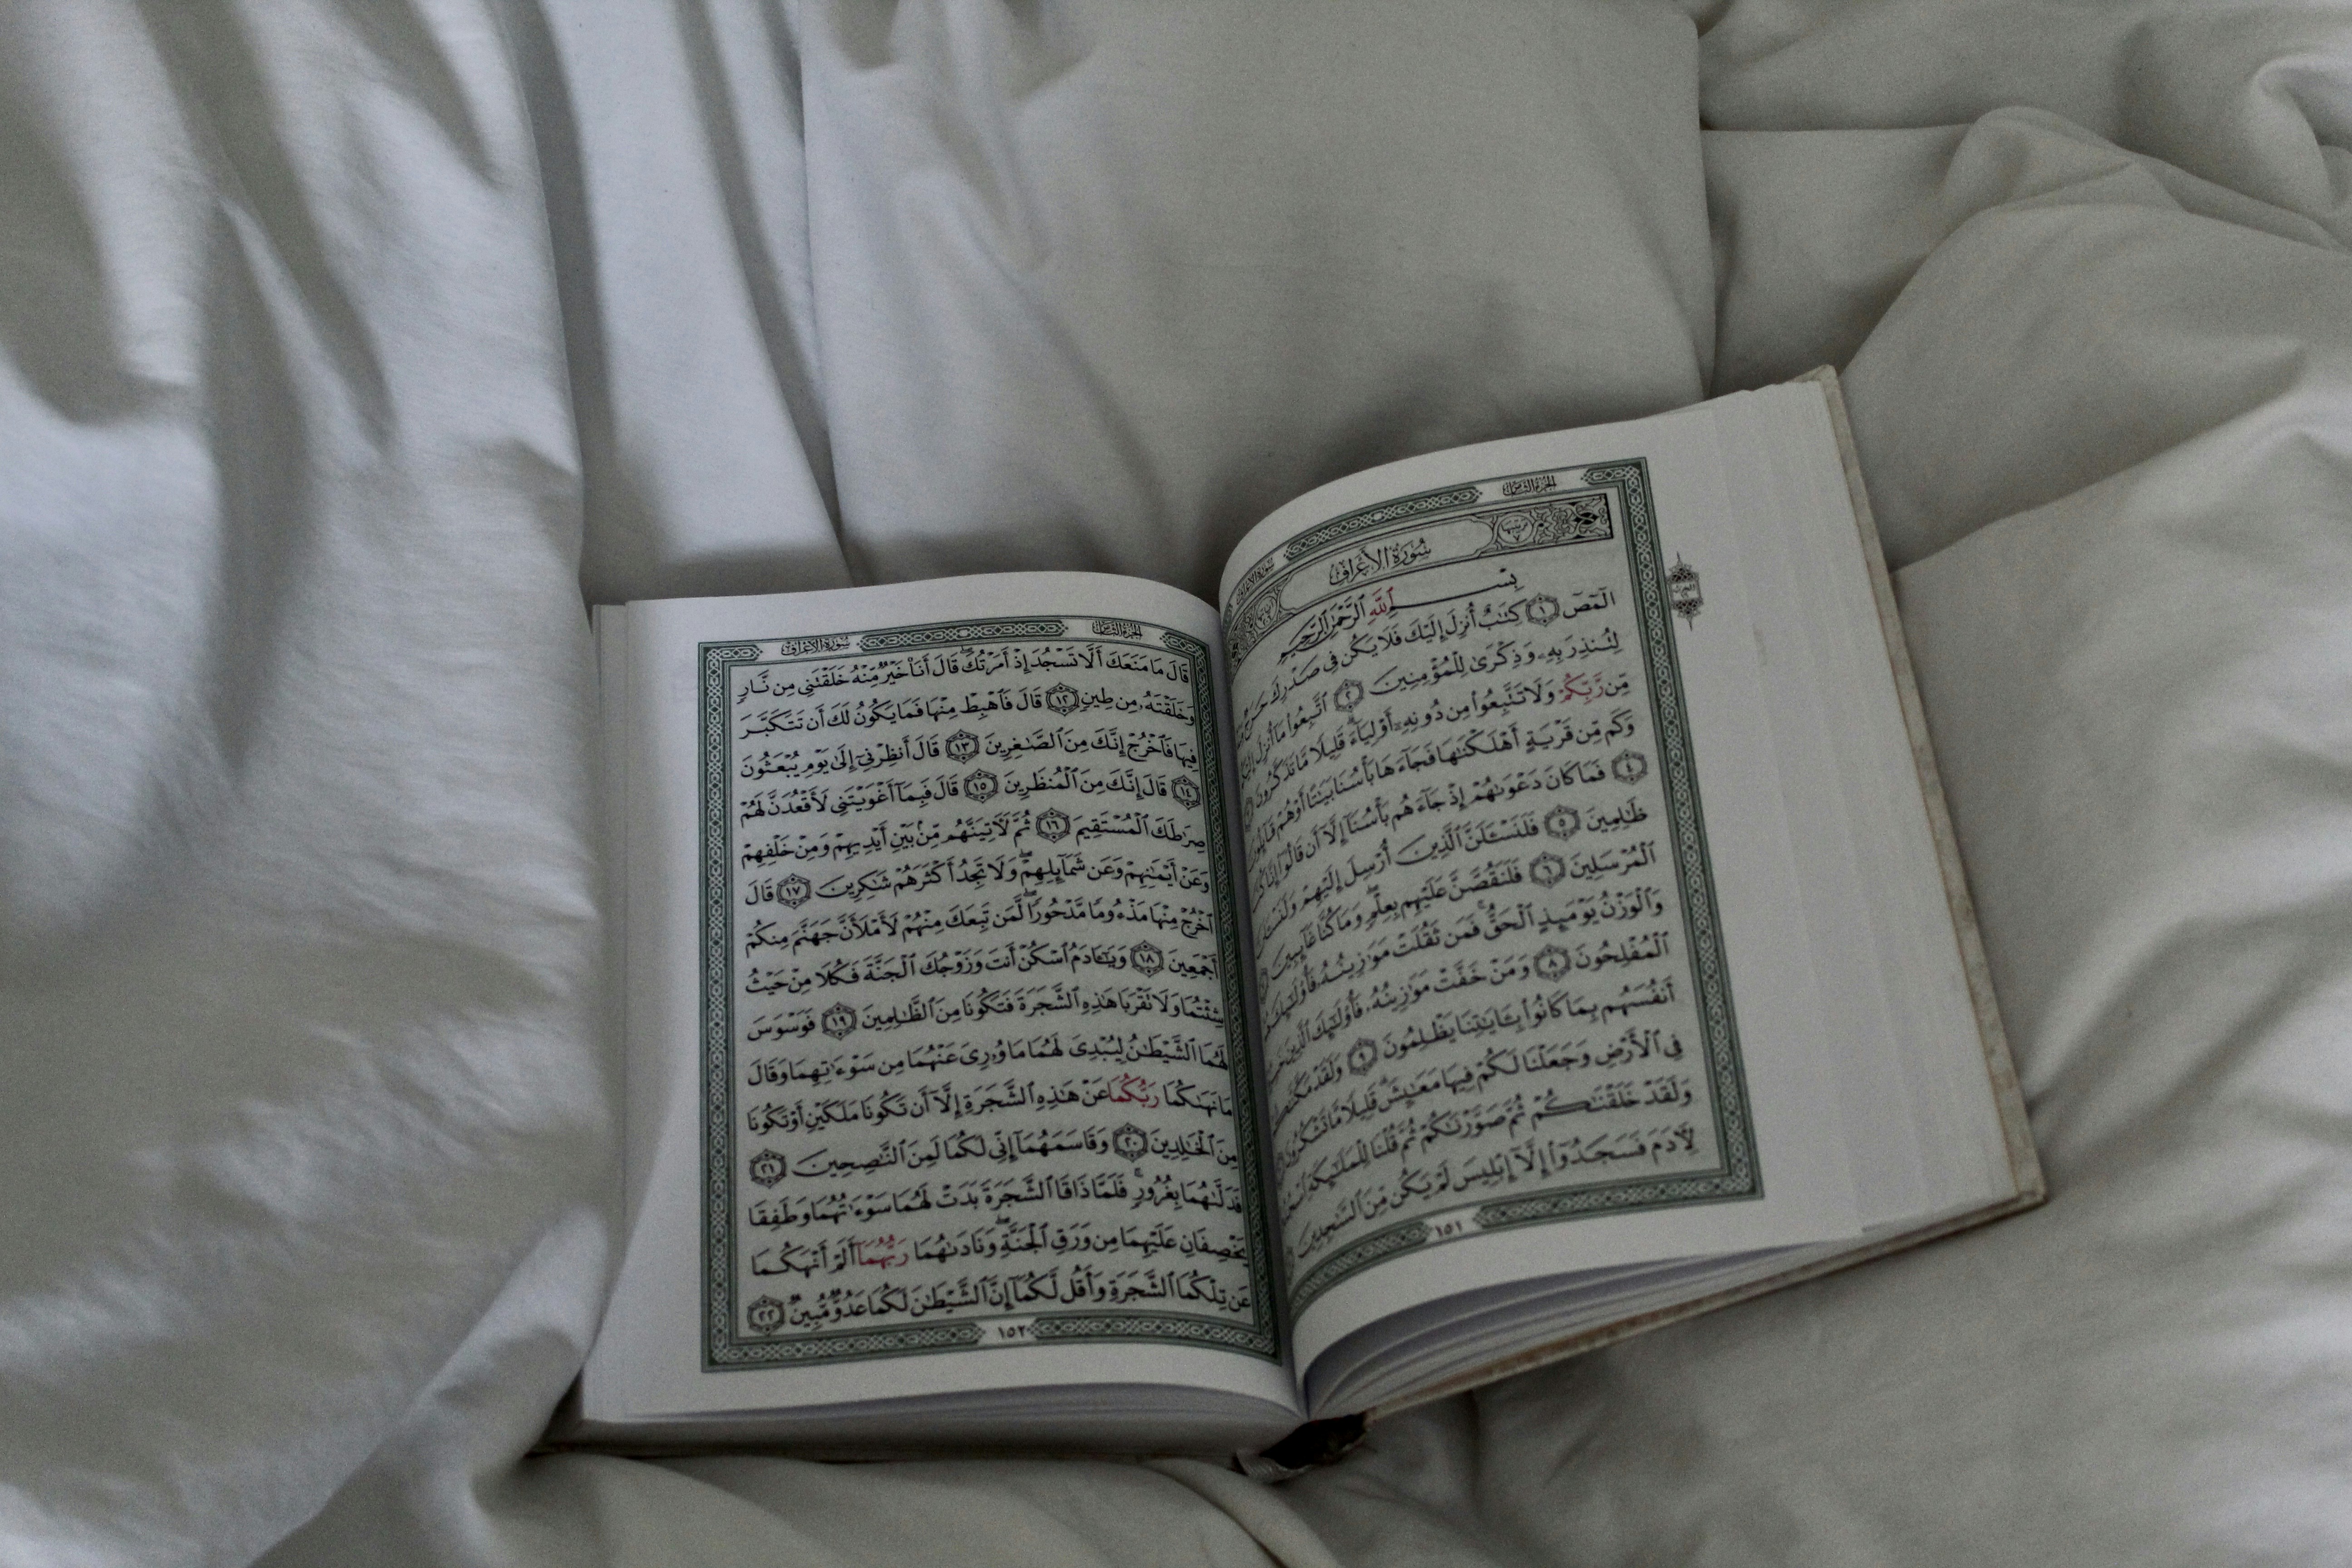 الجزء الثامن
سورة الأعراف
سُورَةُ الأَعْرَافِ
بِسْمِ ٱللَّهِ ٱلرَّحْمَٰنِ ٱلرَّحِيمِ
الٓمٓصٓ ١ كِتَٰبٌ أُنزِلَ إِلَيْكَ فَلَا يَكُن فِى صَدْرِكَ حَرَجٌ
لِتُنذِرَ بِهِۦ وَذِكْرَىٰ لِلْمُؤْمِنِينَ ٢ ٱتَّبِعُوا۟ مَآ أُنزِلَ
مِّن رَّبِّكُمْ وَلَا تَتَّبِعُوا۟ مِن دُونِهِۦٓ أَوْلِيَآءَ قَلِيلًا مَّا تَذَكَّرُونَ
وَكَم مِّن قَرْيَةٍ أَهْلَكْنَٰهَا فَجَآءَهَا بَأْسُنَا بَيَٰتًا أَوْ هُمْ قَآئِلُونَ
٤ فَمَا كَانَ دَعْوَىٰهُمْ إِذْ جَآءَهُم بَأْسُنَآ إِلَّآ أَن قَالُوٓا۟ إِنَّا كُنَّا
ظَٰلِمِينَ ٥ فَلَنَسْـَٔلَنَّ ٱلَّذِينَ أُرْسِلَ إِلَيْهِمْ وَلَنَسْـَٔلَنَّ
ٱلْمُرْسَلِينَ ٦ فَلَنَقُصَّنَّ عَلَيْهِم بِعِلْمٍ وَمَا كُنَّا غَآئِبِينَ
وَٱلْوَزْنُ يَوْمَئِذٍ ٱلْحَقُّ فَمَن ثَقُلَتْ مَوَٰزِينُهُۥ فَأُو۟لَٰٓئِكَ هُمُ
ٱلْمُفْلِحُونَ ٨ وَمَنْ خَفَّتْ مَوَٰزِينُهُۥ فَأُو۟لَٰٓئِكَ ٱلَّذِينَ
أَنفُسَهُم بِمَا كَانُوا۟ بِـَٔايَٰتِنَا يَظْلِمُونَ ٩ وَلَقَدْ مَكَّنَّٰكُمْ
فِى ٱلْأَرْضِ وَجَعَلْنَا لَكُمْ فِيهَا مَعَٰيِشَ قَلِيلًا مَّا تَشْكُرُونَ
وَلَقَدْ خَلَقْنَٰكُمْ ثُمَّ صَوَّرْنَٰكُمْ ثُمَّ قُلْنَا لِلْمَلَٰٓئِكَةِ ٱسْجُدُوا۟
لِـَٔادَمَ فَسَجَدُوٓا۟ إِلَّآ إِبْلِيسَ لَمْ يَكُن مِّنَ ٱلسَّٰجِدِينَ
١٥١
الجزء الثامن
سورة الأعراف
قَالَ مَا مَنَعَكَ أَلَّا تَسْجُدَ إِذْ أَمَرْتُكَ قَالَ أَنَا۠ خَيْرٌ مِّنْهُ خَلَقْتَنِى مِن نَّارٍ
وَخَلَقْتَهُۥ مِن طِينٍ ١٢ قَالَ فَٱهْبِطْ مِنْهَا فَمَا يَكُونُ لَكَ أَن تَتَكَبَّرَ
فِيهَا فَٱخْرُجْ إِنَّكَ مِنَ ٱلصَّٰغِرِينَ ١٣ قَالَ أَنظِرْنِىٓ إِلَىٰ يَوْمِ يُبْعَثُونَ
١٤ قَالَ إِنَّكَ مِنَ ٱلْمُنظَرِينَ ١٥ قَالَ فَبِمَآ أَغْوَيْتَنِى لَأَقْعُدَنَّ لَهُمْ
صِرَٰطَكَ ٱلْمُسْتَقِيمَ ١٦ ثُمَّ لَـَٔاتِيَنَّهُم مِّنۢ بَيْنِ أَيْدِيهِمْ وَمِنْ خَلْفِهِمْ
وَعَنْ أَيْمَٰنِهِمْ وَعَن شَمَآئِلِهِمْ وَلَا تَجِدُ أَكْثَرَهُمْ شَٰكِرِينَ ١٧ قَالَ
ٱخْرُجْ مِنْهَا مَذْءُومًا مَّدْحُورًا لَّمَن تَبِعَكَ مِنْهُمْ لَأَمْلَأَنَّ جَهَنَّمَ مِنكُمْ
أَجْمَعِينَ ١٨ وَيَٰٓـَٔادَمُ ٱسْكُنْ أَنتَ وَزَوْجُكَ ٱلْجَنَّةَ فَكُلَا مِنْ حَيْثُ
شِئْتُمَا وَلَا تَقْرَبَا هَٰذِهِ ٱلشَّجَرَةَ فَتَكُونَا مِنَ ٱلظَّٰلِمِينَ ١٩ فَوَسْوَسَ
لَهُمَا ٱلشَّيْطَٰنُ لِيُبْدِىَ لَهُمَا مَا وُۥرِىَ عَنْهُمَا مِن سَوْءَٰتِهِمَا وَقَالَ
مَا نَهَىٰكُمَا رَبُّكُمَا عَنْ هَٰذِهِ ٱلشَّجَرَةِ إِلَّآ أَن تَكُونَا مَلَكَيْنِ أَوْ تَكُونَا
مِنَ ٱلْخَٰلِدِينَ ٢٠ وَقَاسَمَهُمَآ إِنِّى لَكُمَا لَمِنَ ٱلنَّٰصِحِينَ ٢١
فَدَلَّىٰهُمَا بِغُرُورٍ فَلَمَّا ذَاقَا ٱلشَّجَرَةَ بَدَتْ لَهُمَا سَوْءَٰتُهُمَا وَطَفِقَا
يَخْصِفَانِ عَلَيْهِمَا مِن وَرَقِ ٱلْجَنَّةِ وَنَادَىٰهُمَا رَبُّهُمَآ أَلَمْ أَنْهَكُمَا
عَن تِلْكُمَا ٱلشَّجَرَةِ وَأَقُل لَّكُمَآ إِنَّ ٱلشَّيْطَٰنَ لَكُمَا عَدُوٌّ مُّبِينٌ ٢٢
١٥٢